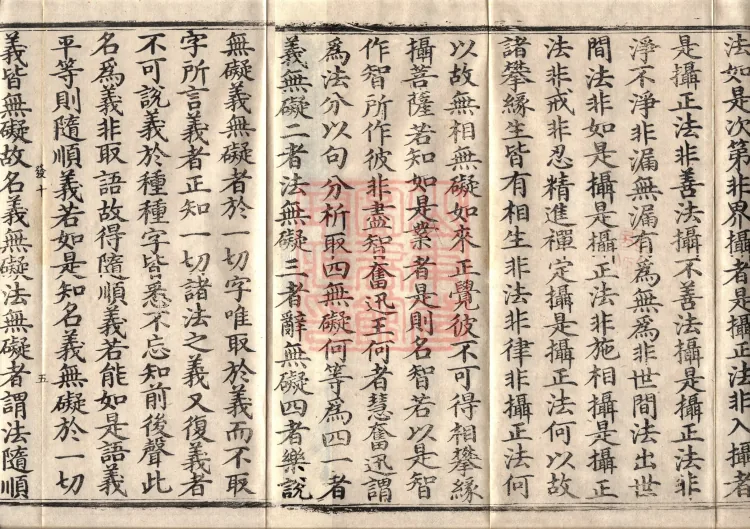 法如是次第非界攝者是攝正法非入攝者
是攝正法非善法攝不善法攝是攝正法非
淨不淨非漏無漏有爲無爲非世間法出世
間法非如是攝是攝正法非施相攝是攝正
法非戒非忍精進禪定攝是攝正法何以故
諸攀緣生皆有相生非法非律非攝正法何
以故無相無礙如來正覺彼不可得相攀緣
攝菩薩若知如是業者是則名智若以是智
作智所作彼非盡智奮迅王何者慧奮迅謂
爲法分以句分析取四無礙何等爲四一者
義無礙二者法無礙三者辭無礙四者樂說
無礙義無礙者於一切字唯取於義而不取
字所言義者正知一切諸法之義又復義者
不可說義於種種字皆悉不忘知前後聲此
名爲義非取語故得隨順義若能如是語義
平等則隨順義若如是知名義無礙於一切
發十
五
義皆無礙故名義無礙法無礙者謂法隨順